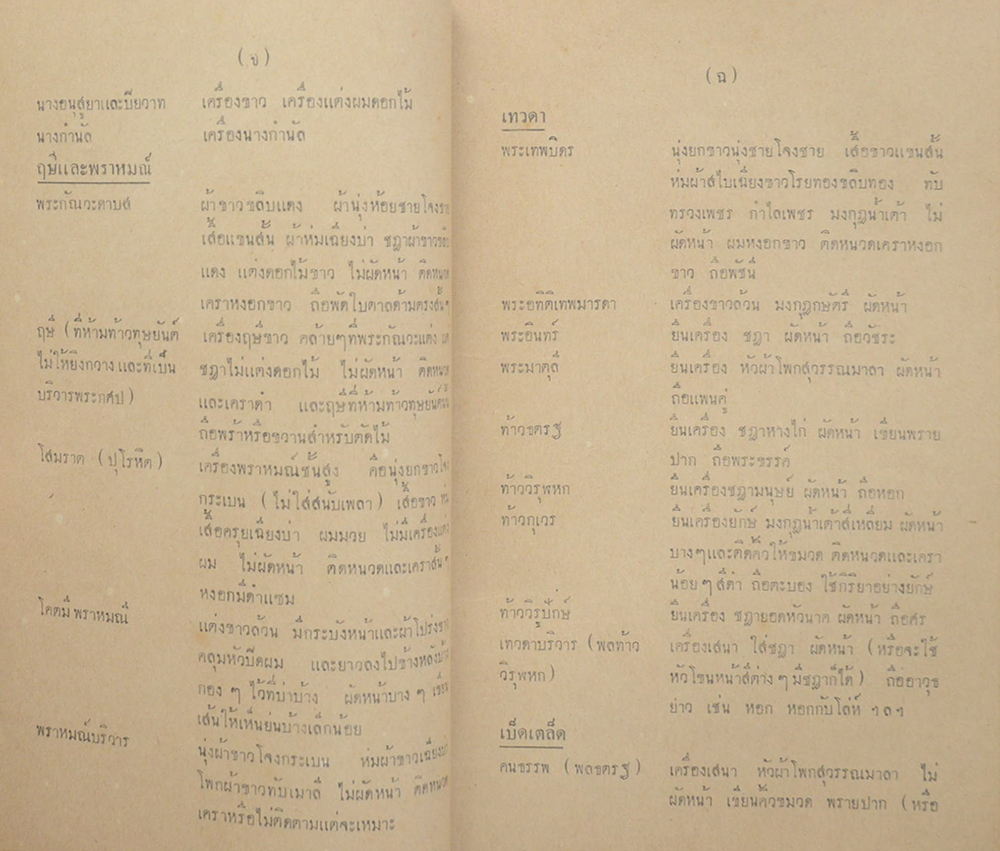 (ช)
นางอนุสูยาและปิยวาท เครื่องขาว เครื่องแต่งผมดอกไม้
นางกำนัล เครื่องนางกำนัล
ฤษีและพราหมณ์
พระกัณวะดาบส ผ้าขาวขลิบแดง ผ้านุ่งห้อยชายโจง
เสื้อแขนสั้น ผ้าห่มเฉียงบ่า ชฎาผ้าขาว
แดง แต่งดอกไม้ขาว ไม่ผัดหน้า ติดหนวด
เคราหงอกขาว ถือพัดใบตาลด้ามตรงสั้นๆ
ฤษี (ที่ห้ามท้าวทุษยันต์ เครื่องฤษีขาว คล้ายๆที่พระกัณวะแต่ง
ไม่ให้ยิงกวาง และที่เป็น ชฎาไม่แต่งดอกไม้ ไม่ผัดหน้า ติดหนวด
บริวารพระกศป) และเคราดำ และฤษีที่ห้ามท้าวทุษยันต์
ถือพร้าหรือขวานสำหรับตัดไม้
โสมราต (ปุโรหิต) เครื่องพราหมณ์ชั้นสูง คือนุ่งยกขาวโจง
กระเบน (ไม่ใส่สนับเพลา) เสื้อขาว
เสื้อครุยเฉียงบ่า ผมมวย ไม่มีเครื่องแต่ง
ผม ไม่ผัดหน้า ติดหนวดและเคราสั้นๆ
หงอกมีดำแซม
โคตมีพราหมณี แต่งขาวล้วน มีกระบังหน้าและผ้าโปร่งขาว
คลุมหัวปิดผม และยาวลงไปข้างหลังบ้าง
กอง ๆ ไว้ที่บ่าบ้าง ผัดหน้าบาง ๆ เขียน
เส้นให้เห็นย่นบ้างเล็กน้อย
พราหมณ์บริวาร นุ่งผ้าขาวโจงกระเบน ห่มผ้าขาวเฉียงบ่า
โพกผ้าขาวทับเมาลี ไม่ผัดหน้า ติดหนวด
เคราหรือไม่ติดตามแต่จะเหมาะ
(ฌ)
เทวดา
พระเทพบิดร นุ่งยกขาวนุ่งชายโจงชาย เสื้อขาวแขนสั้น
ห่มผ้าสไบเฉียงขาวโรยทองขลิบทอง ทับ
ทรวงเพชร กำไลเพชร มงกุฎน้ำเต้า ไม่
ผัดหน้า ผมหงอกขาว ติดหนวดเคราหงอก
ขาว ถือพัชนี
พระอทิติเทพมารดา เครื่องขาวล้วน มงกุฎกษัตรี ผัดหน้า
พระอินทร์ ยืนเครื่อง ชฎา ผัดหน้า ถือวัชระ
พระมาตุลี ยืนเครื่อง หัวผ้าโพกสุวรรณมาลา ผัดหน้า
ถือแพนคู่
ท้าวธตรฐ ยืนเครื่อง ชฎาหางไก่ ผัดหน้า เขียนพราย
ปาก ถือพระขรรค์
ท้าววิรุฬหก ยืนเครื่องชฎามนุษย์ ผัดหน้า ถือหอก
ท้าวกุเวร ยืนเครื่องยักษ์ มงกุฎน้ำเต้าสี่เหลี่ยม ผัดหน้า
บางๆและติดคิ้วให้ขมวด ติดหนวดและเครา
น้อยๆสีดำ ถือตะบอง ใช้กิริยาอย่างยักษ์
ท้าววิรูปักษ์ ยืนเครื่อง ชฎายอดหัวนาค ผัดหน้า ถือศร
เทวดาบริวาร (พลท้าว เครื่องเสนา ใส่ชฎา ผัดหน้า (หรือจะใช้
วิรุฬหก) หัวโขนหน้าสีต่างๆมีชฎาก็ได้) ถืออาวุธ
ยาว เช่น หอก หอกกับโล่ห์ ฯลฯ
เบ็ดเตล็ด
คนธรรพ (พลธตรฐ) เครื่องเสนา หัวผ้าโพกสุวรรณมาลา ไม่
ผัดหน้า เขียนคิ้วขมวด พรายปาก (หรือ